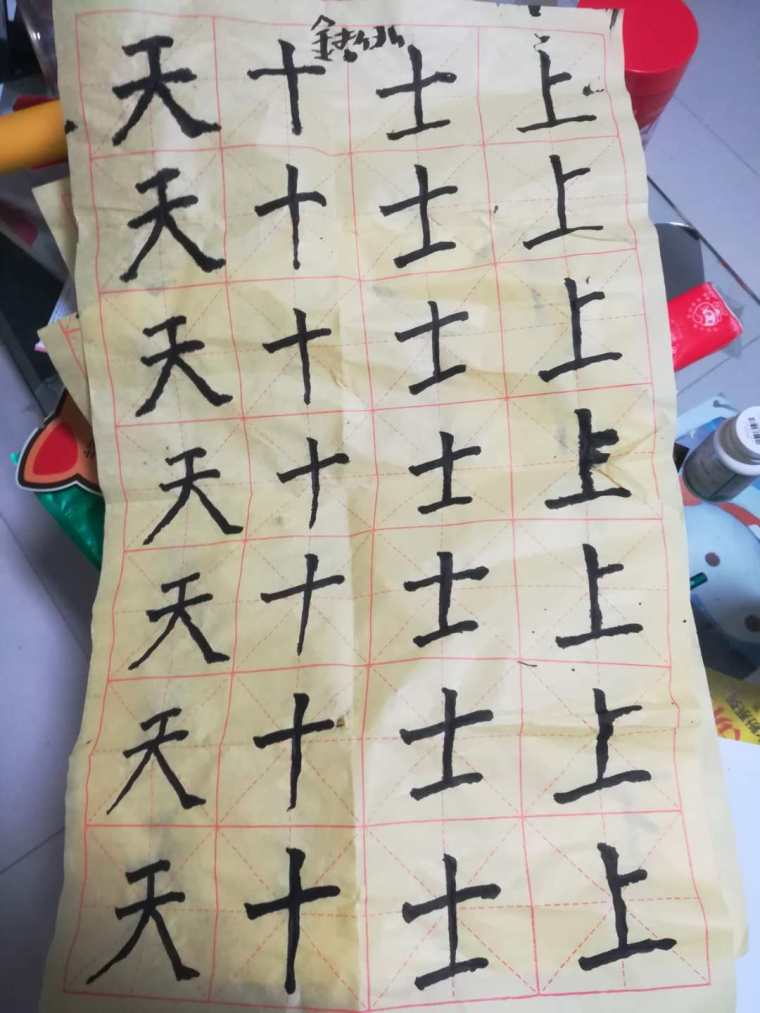 天十士上
天十士上
天十士上
天十士上
天十士上
天十士上
天十士上